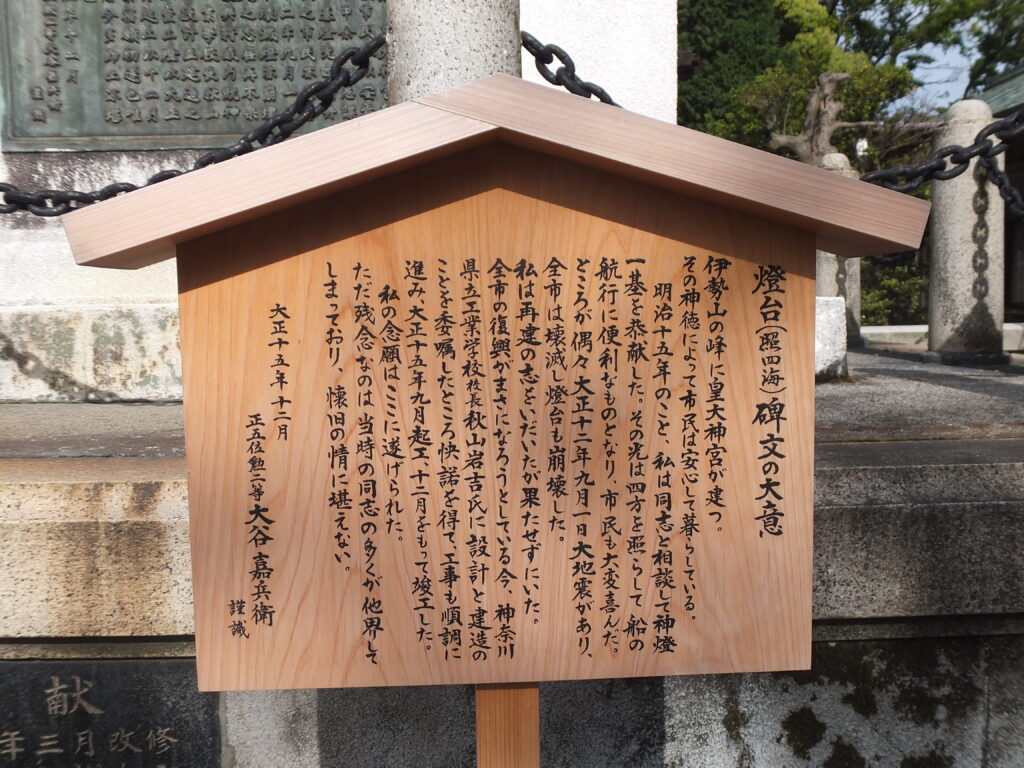 燈台(照四海)碑文の大意
伊勢山の峰に皇大神宮が建つ。
その神徳によって市民は安心して暮らしている。
明治十五年のこと、私は同志と相談して神燈
一基を恭献した。その光は四方を照らして船の
航行に便利なものとなり、市民も大変喜んだ。
ところが偶々大正十二年九月一日大地震があり、
全市は壊滅し燈台も崩壊した。
私は再建の志をいだいたが果たせずにいた。
全市の復興がまさになろうとしている今、神奈川
県立工業学校校長秋山岩吉氏に設計と建造の
ことを委嘱したところ快諾を得て、工事も順調に
進み、大正十五年九月起工、十二月をもって竣工した。
私の念願はここに遂げられた。
ただ残念なのは当時の同志の多くが他界して
しまっており、懐旧の情に堪えない。
大正十五年十二月
正五位勲二等大谷嘉兵衛
謹識
献
年三月改修